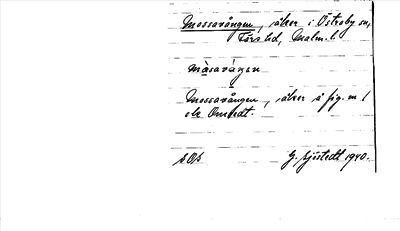 Mossavången, åker i Östraby sn,
Färs hd, Malm. l.
måsavaŋen
Mossavången, åker å fig. m 1
G. Sjöstedt 1940.